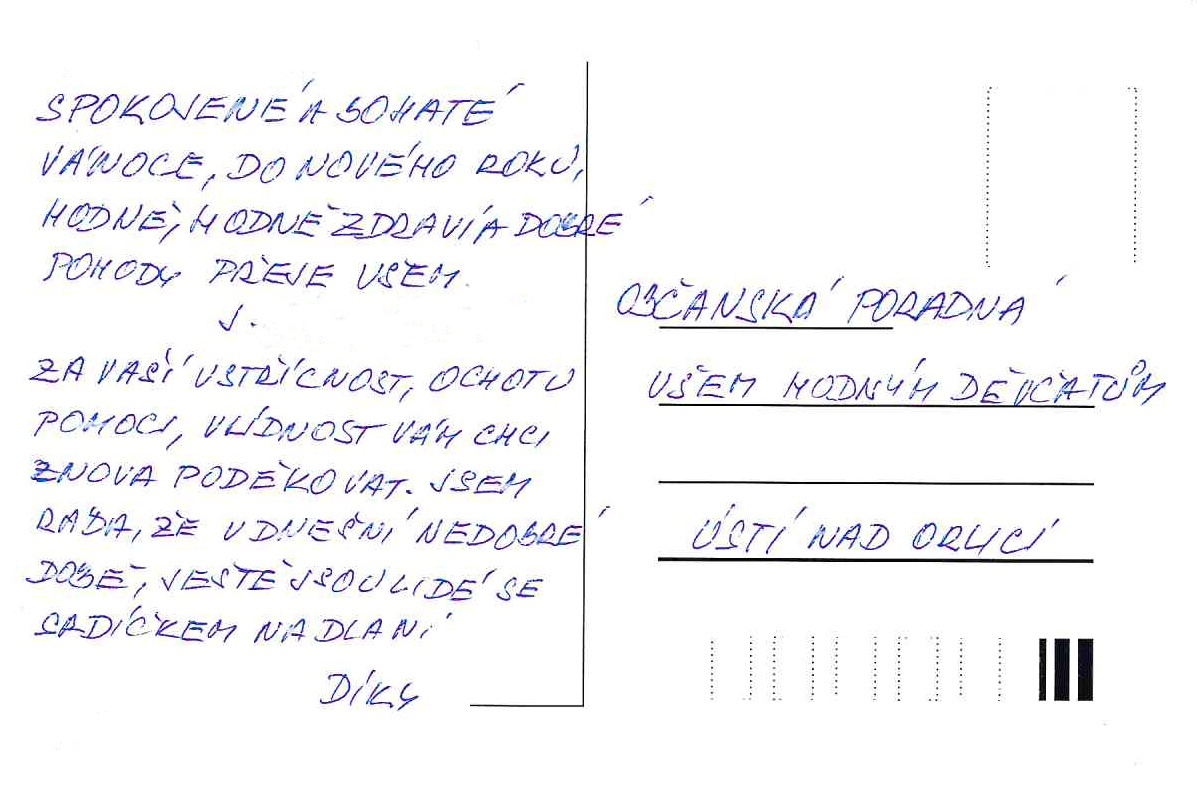 SPOKOJENÉ A BOHATÉ
VÁNOCE, DO NOVÉHO ROKU,
HODNĚ, HODNĚ ZDRAVÍ A DOBRÉ
POHODY PŘEJE VŠEM.
J.
ZA VAŠÍ VSTŘÍCNOST, OCHOTU
POMOCI, VLÍDNOST VÁM CHCI
ZNOVA PODĚKOVAT. JSEM
RÁDA, ŽE V DNEŠNÍ NEDOBRÉ
DOBĚ, JEŠTĚ JSOU LIDÉ SE
SRDÍČKEM NA DLANI
DÍKY
OBČANSKÁ PORADNÁ
VŠEM HODNÝM DĚVČATŮM
ÚSTÍ NAD ORLICÍ